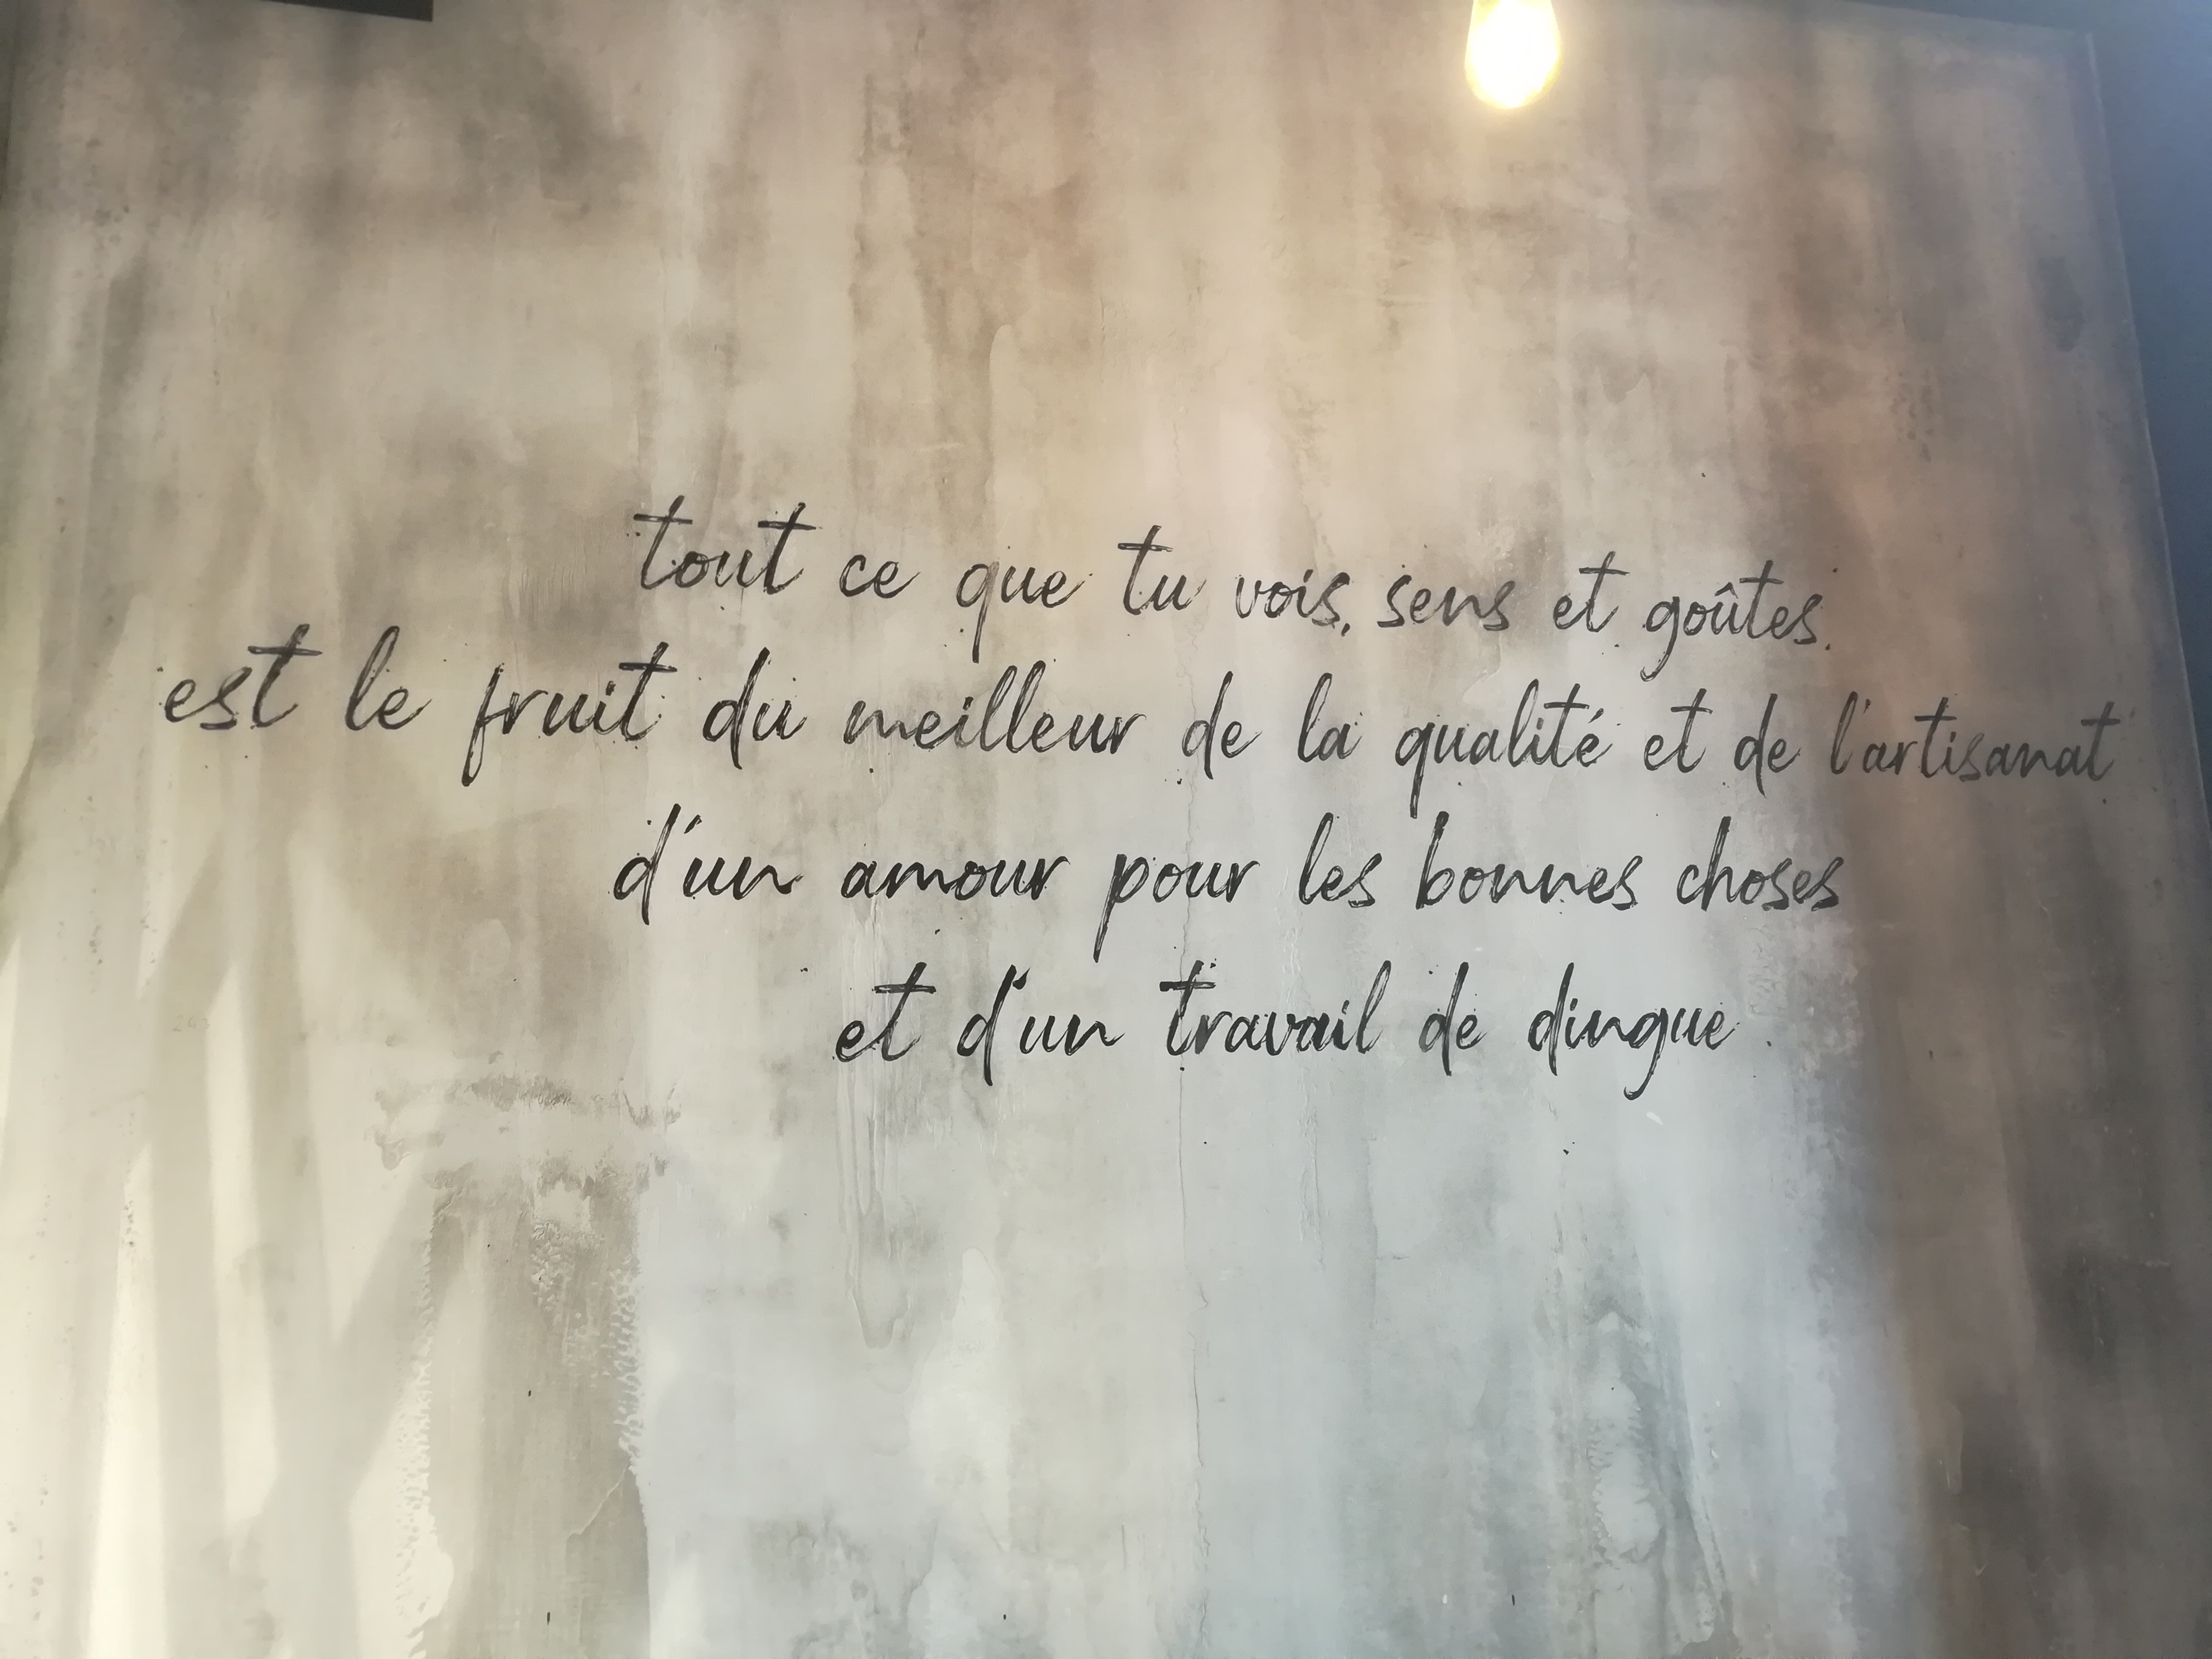 tout ce que tu vois, sens et goûtes.
est le fruit du meilleur de la qualité et de l'artisanat
d'un amour pour les bonnes choses
et d'un travail de dingue.